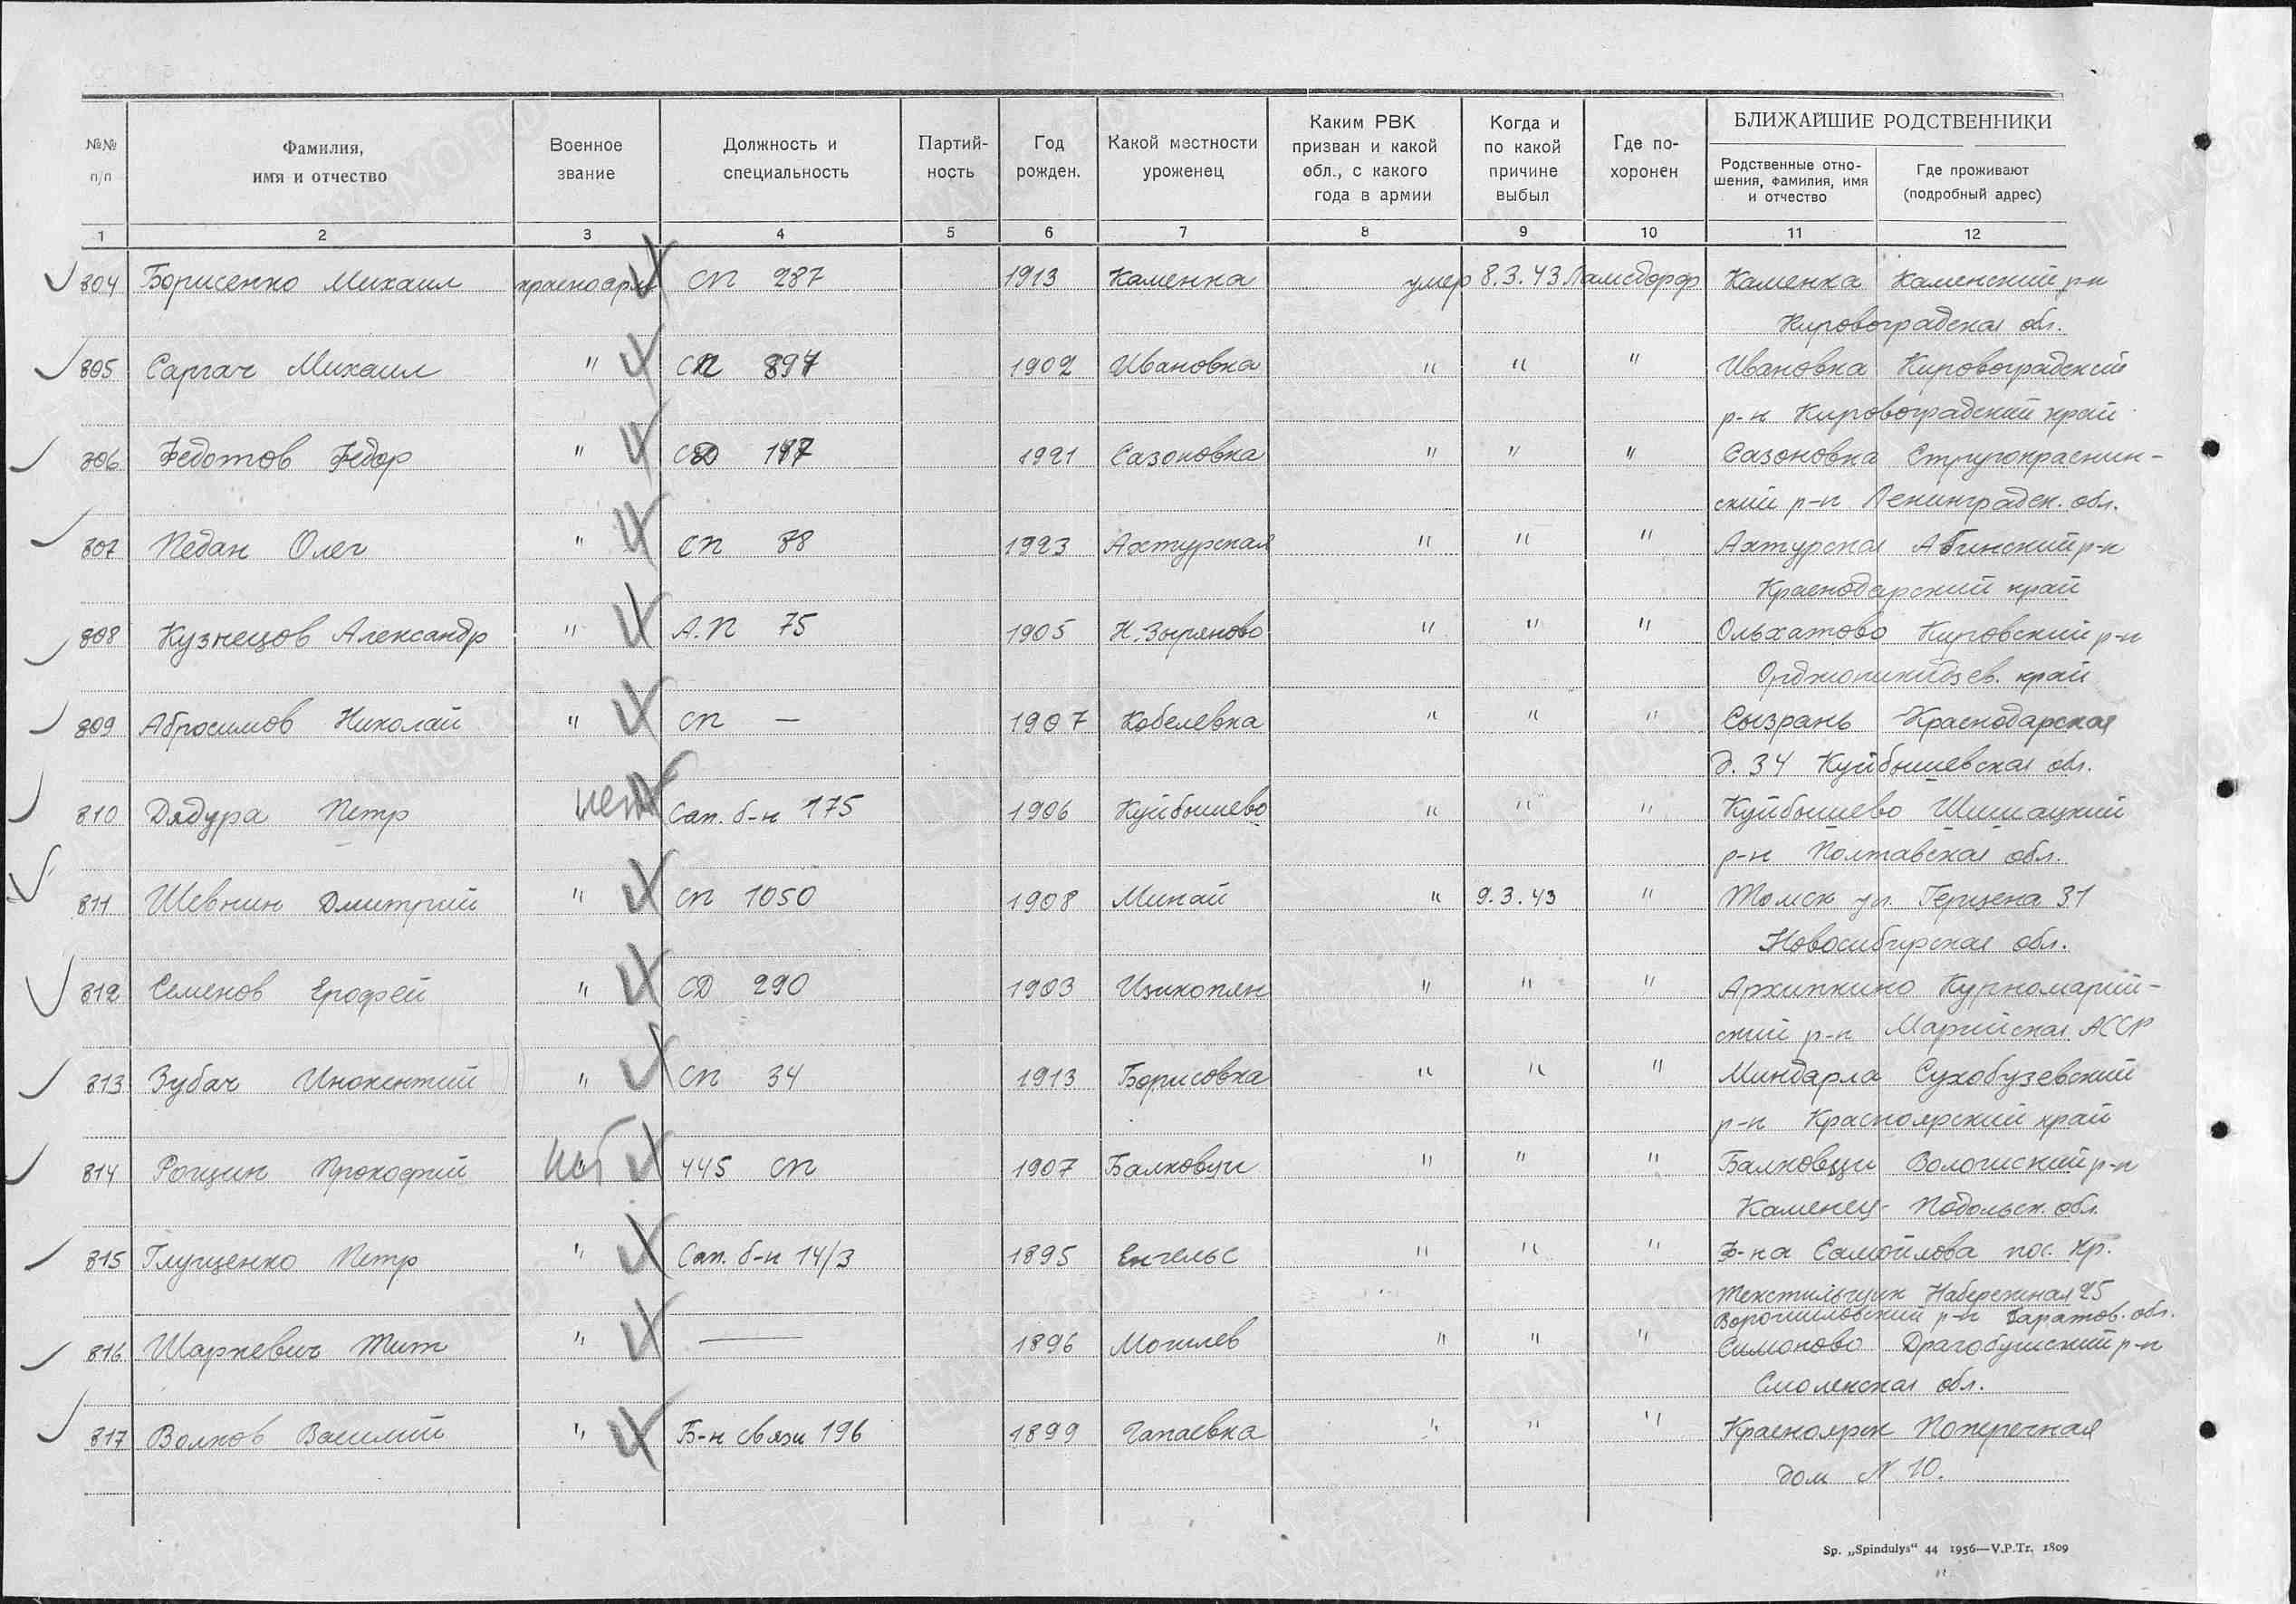 №№ п/п
Фамилия, имя и отчество
Военное звание
Должность и специальность
Партий- ность
Год рожден.
Какой местности уроженец
Каким РВК призван и какой обл., с какого года в армии
Когда и по какой причине выбыл
Где по- хоронен
БЛИЖАЙШИЕ РОДСТВЕННИКИ
Родственные отно- шения, фамилия, имя и отчество
Где проживают (подробный адрес)
1 2 3 4 5 6 7 8 9 10 11 12
804 Борисенко Михаил красноарм СП 287 1913 Каменка умер 8.3.43 Ламсдорф Каменка Каменский р-н
Кировоградская обл.
805 Саргач Михаил " СП 897 1902 Ивановка " " " Ивановка Кировоградский
р-н Кировоградский край
806 Федотов Федор " СД 1921 Сазоновка " " " Сазоновка Стругокраснин-
ский р-н Ленинградск. обл.
807 Педан Олег " СП 88 1923 Ахтурская " " " Ахтурская Абинский р-н
Краснодарский край
808 Кузнецов Александр " А.П 75 1905 Н.Зыряново " " " Ольхатово Кировский р-н
Орджоникидзев. край
809 Абросимов Николай " СП — 1907 Кобелевка " " " Сызрань Краснодарская
д. 34 Куйбышевская обл.
810 Дядура Петр нет Сап. б-н 175 1906 Куйбышево " " " Куйбышево Шишацкий
р-н Полтавская обл.
811 Шевнин Дмитрий " СП 1050 1908 Минай " 9.3.43 " Томск ул. Герцена 31
Новосибирская обл.
812 Семенов Ерофей " СД 290 1903 " " " Архипкино Курномарий-
ский р-н Марийская АССР
813 Зубач Инокентий " СП 34 1913 Борисовка " " " Миндарла Сухобузевский
р-н Красноярский край
814 Рощин Прокофий 445 СП 1907 Балковци " " " Балковци Волочиский р-н
Каменец- Подольск. обл.
815 Глущенко Петр " Сап. б-н 14/3 1895 Енгельс " " " Ф-ка Самойлова пос. Кр.
Текстильщик Набережная 25
Ворошиловский р-н Саратов. обл.
816 Шаркевич Тит " — 1896 Могилев " " " Симоново Драгобушский р-н
Смоленская обл.
817 Волков Василий " Б-н связи 196 1899 Чапаевка " " " Красноярск Поперечная
дом N 10.
Sp. „Spindulys“ 44 1956—V.P.Tr. 1809